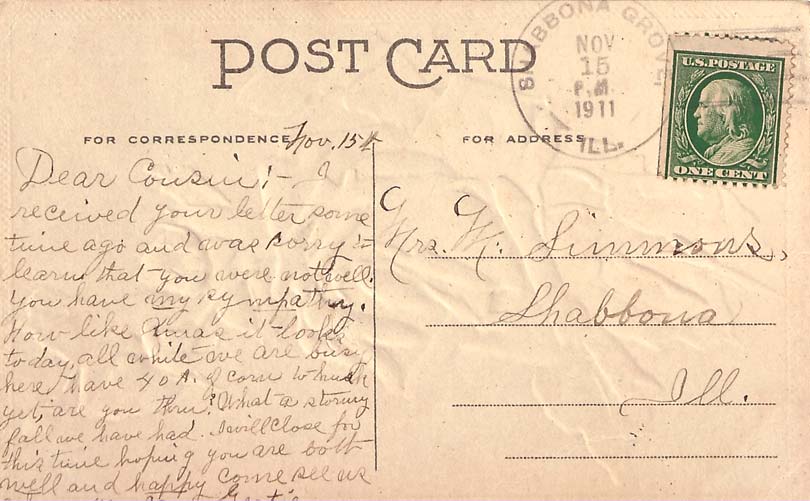 POST CARD
SHABBONA GROVE
NOV
15
P.M.
1911
ILL.
U.S. POSTAGE
ONE CENT
FOR CORRESPONDENCE
FOR ADDRESS
Nov. 15th
Dear Cousin:- I
received your letter some
time ago and was sorry to
learn that you were not well.
You have my sympathy.
How like Xmas it looks
today, all white we are busy
here have 40 A. of corn to husk
yet are you thru? What a stormy
fall we have had. I will close for
this time hoping you are both
well and happy come see us
Mrs. M. Simmons,
Shabbona
Ill.